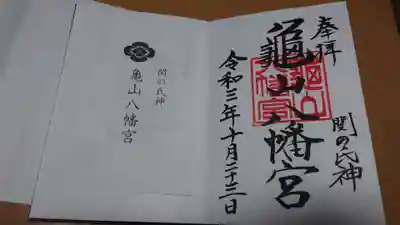 奉拝
関の氏神
龜山八幡宮
令和三年十月二十三日
関の氏神
亀山八幡宮